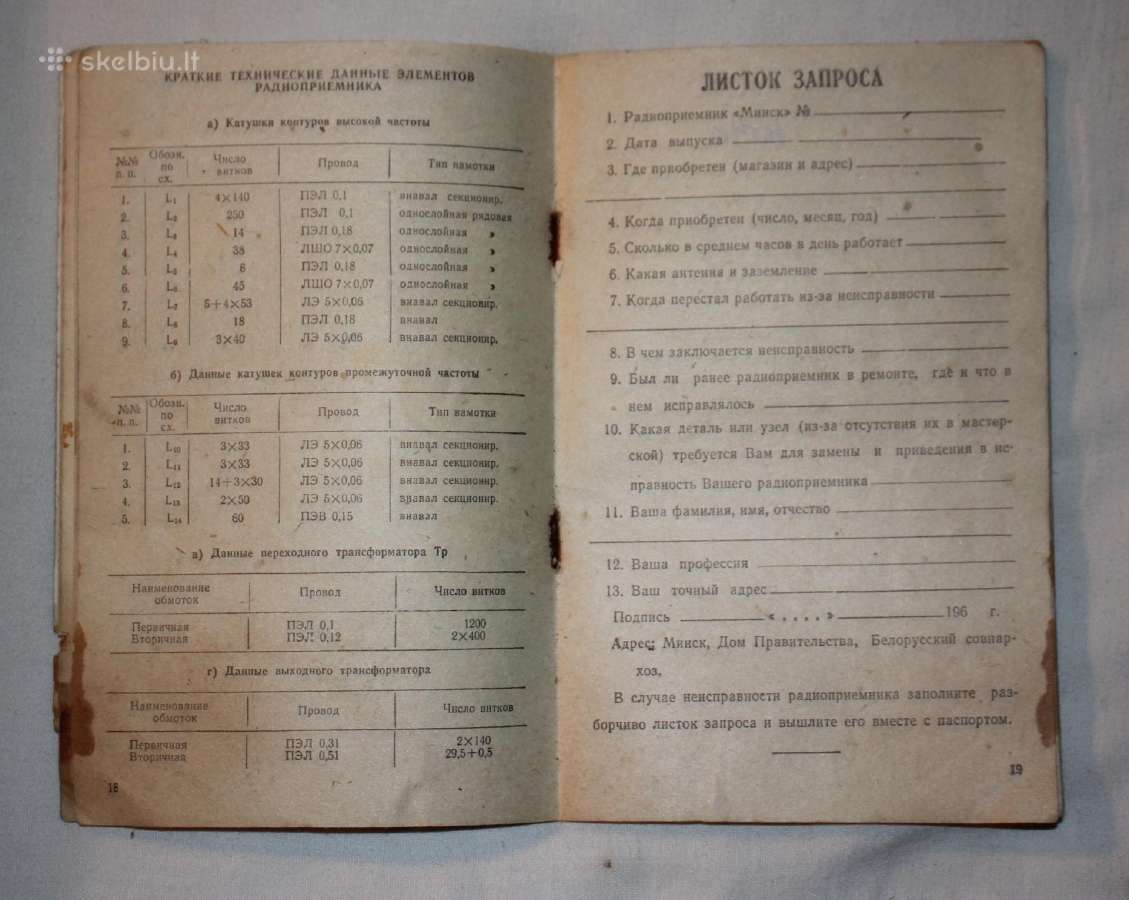 skelbiu.lt
КРАТКИЕ ТЕХНИЧЕСКИЕ ДАННЫЕ ЭЛЕМЕНТОВ
РАДИОПРИЕМНИКА
а) Катушки контуров высокой частоты
№№ п. п. Обозн. по сх. Число витков Провод Тип намотки
1. L₁ 4×140 ПЭЛ 0,1 внавал секционир.
2. L₂ 250 ПЭЛ 0,1 однослойная рядовая
3. L₃ 14 ПЭЛ 0,18 однослойная »
4. L₄ 38 ЛШО 7×0,07 однослойная »
5. L₅ 6 ПЭЛ 0,18 однослойная »
6. L₆ 45 ЛШО 7×0,07 однослойная »
7. L₇ 5+4×53 ЛЭ 5×0,06 внавал секционир.
8. L₈ 18 ПЭЛ 0,18 внавал
9. L₉ 3×40 ЛЭ 5×0,06 внавал секционир.
б) Данные катушек контуров промежуточной частоты
№№ п. п. Обозн. по сх. Число витков Провод Тип намотки
1. L₁₀ 3×33 ЛЭ 5×0,06 внавал секционир.
2. L₁₁ 3×33 ЛЭ 5×0,06 внавал секционир.
3. L₁₂ 14+3×30 ЛЭ 5×0,06 внавал секционир.
4. L₁₃ 2×50 ЛЭ 5×0,06 внавал секционир.
5. L₁₄ 60 ПЭВ 0,15 внавал
в) Данные переходного трансформатора Тр
Наименование обмоток Провод Число витков
Первичная ПЭЛ 0,1 1200
Вторичная ПЭЛ 0,12 2×400
г) Данные выходного трансформатора
Наименование обмоток Провод Число витков
Первичная ПЭЛ 0,31 2×140
Вторичная ПЭЛ 0,51 29,5+0,5
18
ЛИСТОК ЗАПРОСА
1. Радиоприемник «Минск» №
2. Дата выпуска
3. Где приобретен (магазин и адрес)
4. Когда приобретен (число, месяц, год)
5. Сколько в среднем часов в день работает
6. Какая антенна и заземление
7. Когда перестал работать из-за неисправности
8. В чем заключается неисправность
9. Был ли ранее радиоприемник в ремонте, где и что в
нем исправлялось
10. Какая деталь или узел (из-за отсутствия их в мастер-
ской) требуется Вам для замены и приведения в ис-
правность Вашего радиоприемника
11. Ваша фамилия, имя, отчество
12. Ваша профессия
13. Ваш точный адрес
Подпись « . . . . » 196 г.
Адрес: Минск, Дом Правительства, Белорусский совнар-
хоз.
В случае неисправности радиоприемника заполните раз-
борчиво листок запроса и вышлите его вместе с паспортом.
19